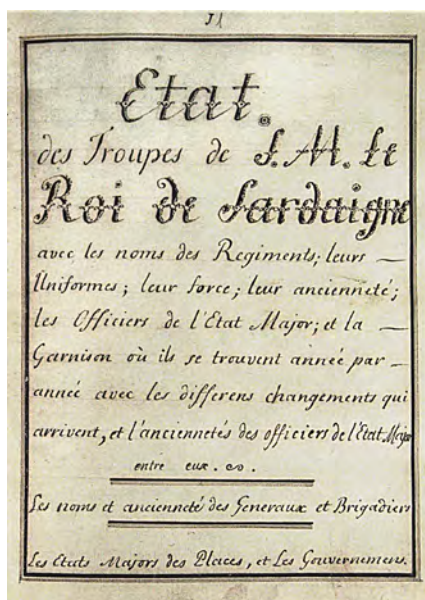 Etat.
des Troupes de S. M. Le
Roi de Sardaigne
avec les noms des Regiments; leurs —
Uniformes; leur force; leur ancienneté;
les Officiers de l'Etat Major; et la —
Garnison où ils se trouvent année par —
année avec les differens changements qui
arrivent, et l'anciennetés des officiers de l'Etat Major
entre eux.
Les noms et ancienneté des Generaux et Brigadiers
Les Etats Majors des Places, et Les Gouvernemens.